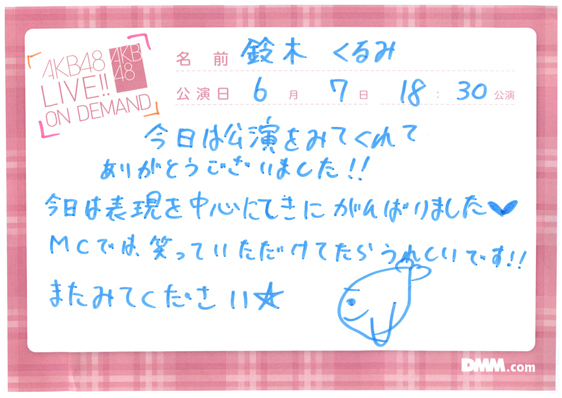 AKB48
LIVE!!
ON DEMAND
AKB
48
名前 鈴木 くるみ
公演日 6月 7日 18:30公演
今日は公演をみてくれて
ありがとうございました!!
今日は表現を中心にてきにがんばりました♥
MCでは、笑っていただけてたらうれしいです!!
またみてください☆
DMM.com